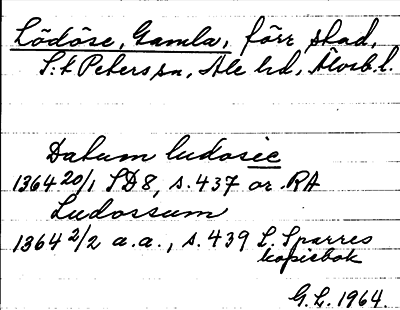 Lödöse, Gamla, förr stad,
S:t Peters sn, Ale hd, Älvsb. l.
Datum ludosie
1364 20/1 SD 8, s. 437 or. RA
Ludossum
1364 2/2 a.a., s. 439 L. Sparres
kopiebok
G.L. 1964.